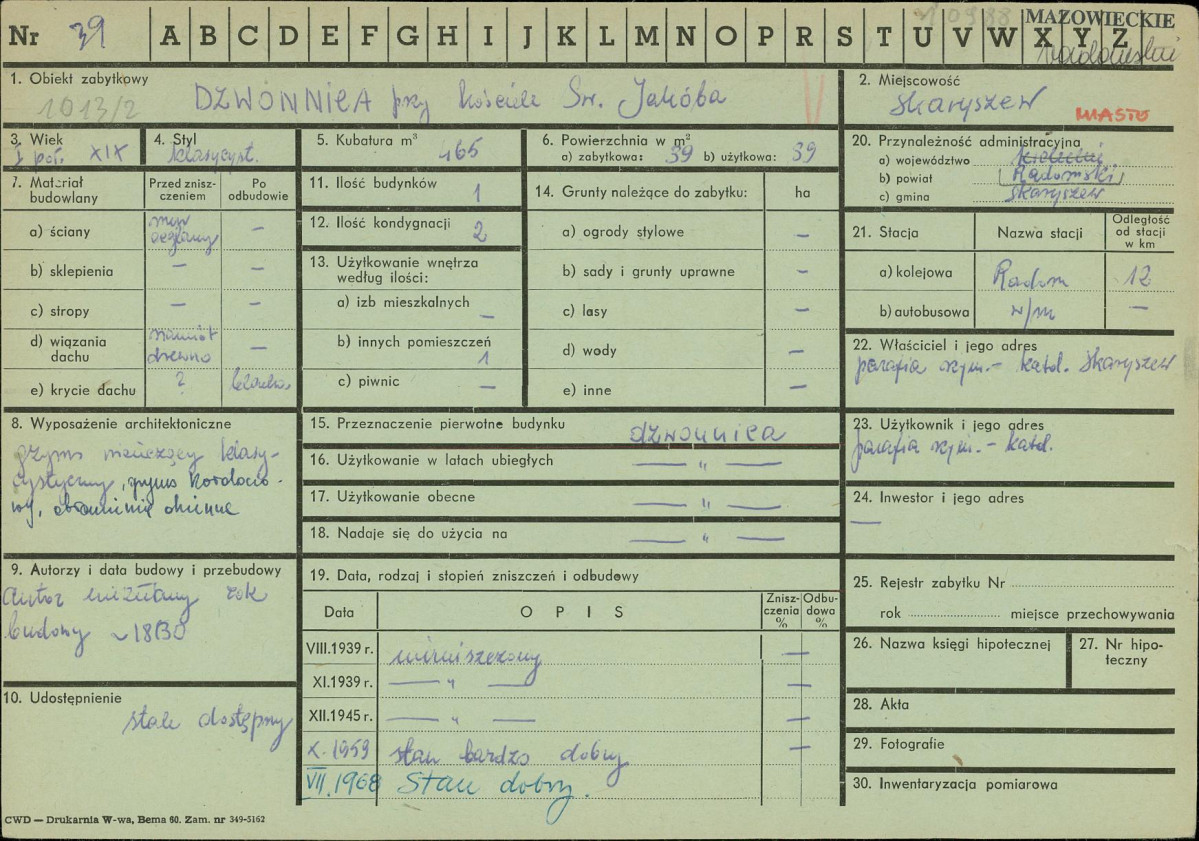 Nr 39 A B C D E F G H I J K L M N O P R S T U V W X Y Z
MAZOWIECKIE
1. Obiekt zabytkowy
1013/2
DZWONNICA przy kościele Św. Jakóba
2. Miejscowość
Skaryszew
MIASTO
3. Wiek
I poł. XIX
4. Styl
klasycyst.
5. Kubatura m³ 465
6. Powierzchnia w m²
a) zabytkowa: 39 b) użytkowa: 39
20. Przynależność administracyjna
a) województwo kieleckie
b) powiat Radomski
c) gmina Skaryszew
7. Materiał budowlany
Przed zniszczeniem
Po odbudowie
a) ściany mur ceglany –
b) sklepienia – –
c) stropy – –
d) wiązania dachu namiot drewno –
e) krycie dachu ? blacha
11. Ilość budynków 1
12. Ilość kondygnacji 2
13. Użytkowanie wnętrza
według ilości:
a) izb mieszkalnych –
b) innych pomieszczeń 1
c) piwnic –
14. Grunty należące do zabytku: ha
a) ogrody stylowe –
b) sady i grunty uprawne –
c) lasy –
d) wody –
e) inne –
21. Stacja Nazwa stacji Odległość od stacji w km
a) kolejowa Radom 12
b) autobusowa w/m –
22. Właściciel i jego adres
parafia rzym.– katol. Skaryszew
8. Wyposażenie architektoniczne
gzyms wieńczący klasy-
cystyczny, gzyms kordono-
wy, obramienie okienne
15. Przeznaczenie pierwotne budynku dzwonnica
16. Użytkowanie w latach ubiegłych — „ —
17. Użytkowanie obecne — „ —
18. Nadaje się do użycia na — „ —
23. Użytkownik i jego adres
parafia rzym.– katol.
24. Inwestor i jego adres
—
9. Autorzy i data budowy i przebudowy
Autor nieznany rok
budowy ~1830
10. Udostępnienie
stale dostępny
19. Data, rodzaj i stopień zniszczeń i odbudowy
Data OPIS Zniszczenia % Odbudowa %
VIII.1939 r. niezniszczony –
XI.1939 r. — „ — –
XII.1945 r. — „ — –
X.1959 stan bardzo dobry –
VII.1968 Stan dobry.
25. Rejestr zabytku Nr
rok miejsce przechowywania
26. Nazwa księgi hipotecznej
27. Nr hipo-
teczny
28. Akta
29. Fotografie
30. Inwentaryzacja pomiarowa
CWD — Drukarnia W-wa, Bema 60. Zam. nr 349-5162